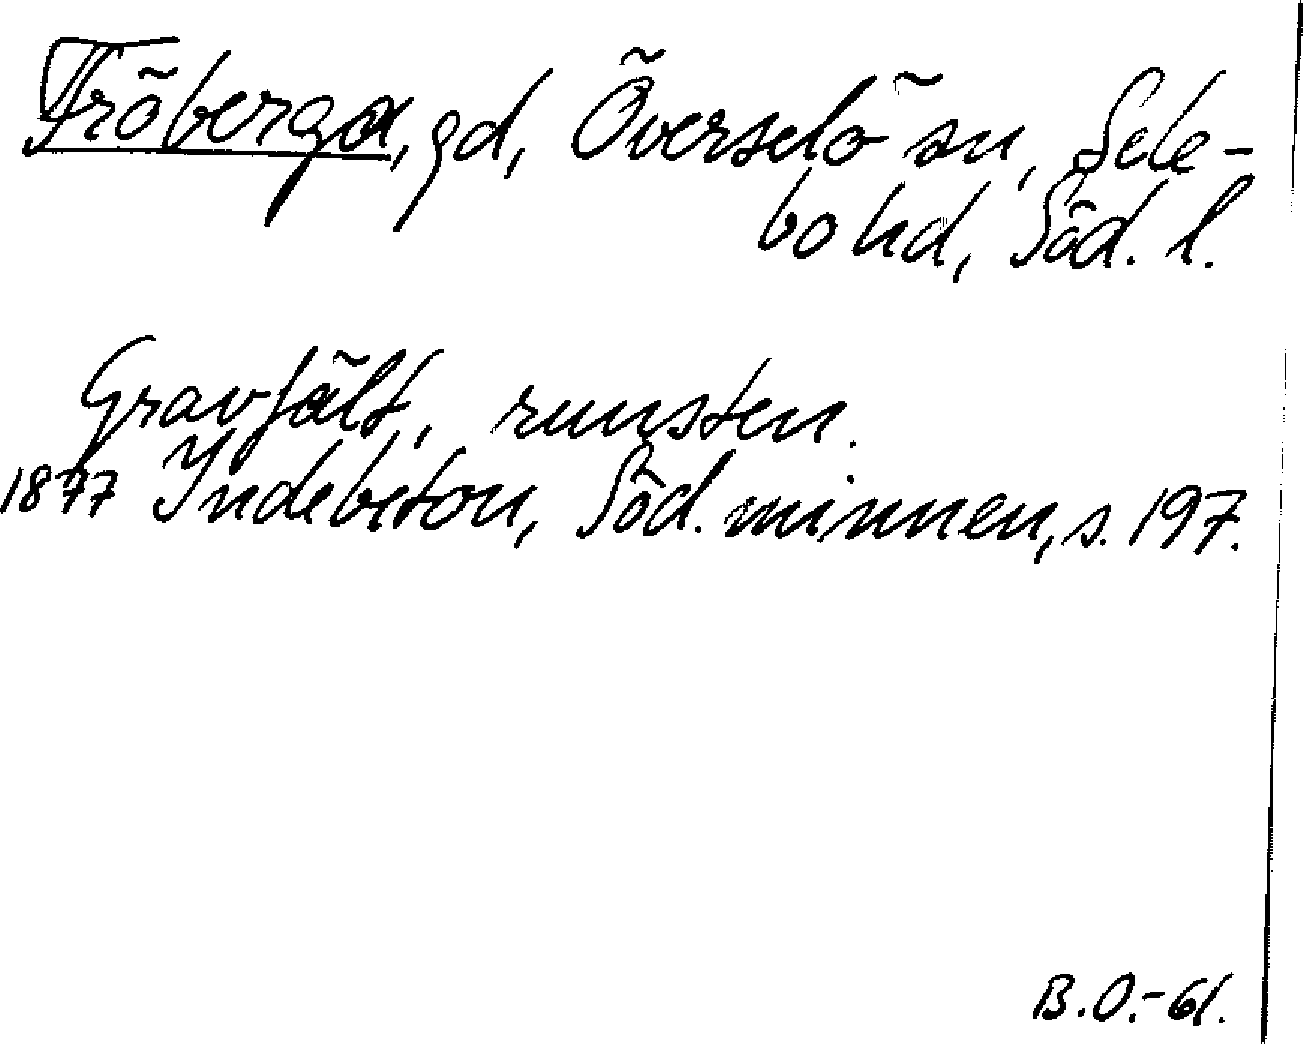 Fröberga, gd, Överselö sn, Sele-
bo hd, Söd. l.
Gravfält, runsten.
1877 Indebetou, Söd. minnen, s. 197.
B.O.-61.